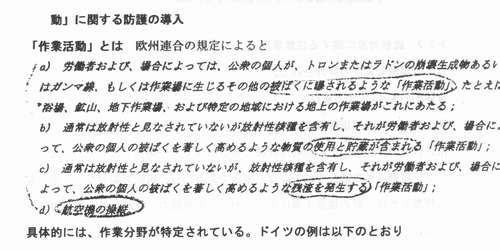 動」に関する防護の導入
「作業活動」とは 欧州連合の規定によると
a) 労働者および、場合によっては、公衆の個人が、トロンまたはラドンの崩壊生成物あるい
はガンマ線、もしくは作業場に生じるその他の被ばくに曝されるような「作業活動」、たとえば
浴場、鉱山、地下作業場、および特定の地域における地上の作業場がこれにあたる；
b) 通常は放射性と見なされていないが放射性核種を含有し、それが労働者および、場合に
って、公衆の個人の被ばくを著しく高めるような物質の使用と貯蔵が含まれる「作業活動」；
c) 通常は放射性と見なされていないが、放射性核種を含有し、それが労働者および、場合に
よって、公衆の個人の被ばくを著しく高めるような残渣を発生する「作業活動」；
d) 航空機の操縦。
具体的には、作業分野が特定されている。ドイツの例は以下のとおり